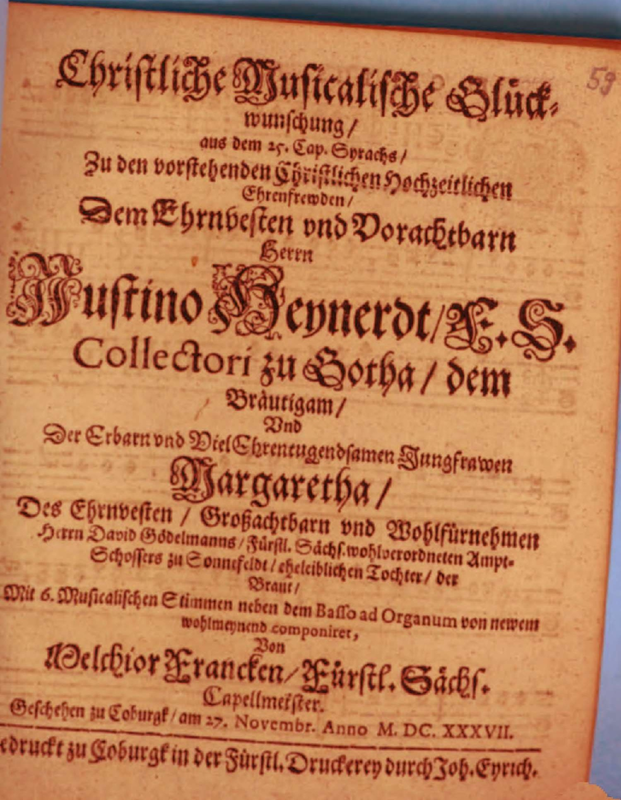 59
Christliche Musicalische Glück-
wunschung/
aus dem 25. Cap. Syrachs/
Zu den vorstehenden Christlichen Hochzeitlichen
Ehrenfrewden/
Dem Ehrnvesten vnd Vorachtbarn
Herrn
Justino Heynerdt/F.S.
Collectori zu Gotha/ dem
Bräutigam/
Vnd
Der Erbarn vnd Viel Ehrentugendsamen Jungfrawen
Margaretha/
Des Ehrnvesten/ Großachtbarn vnd Wohlfürnehmen
Herrn David Gödelmanns/ Fürstl. Sächs. wohlverordneten Ampt-
Schossers zu Sonnefeldt/ eheleiblichen Tochter/ der
Braut/
Mit 6. Musicalischen Stimmen neben dem Basso ad Organum von newem
wohlmeynend componiret,
Von
Melchior Francken/ Fürstl. Sächs.
Capellmeister.
Geschehen zu Coburgk/ am 27. Novembr. Anno M. DC. XXXVII.
edruckt zu Coburgk in der Fürstl. Druckerey durch Joh. Eyrich.